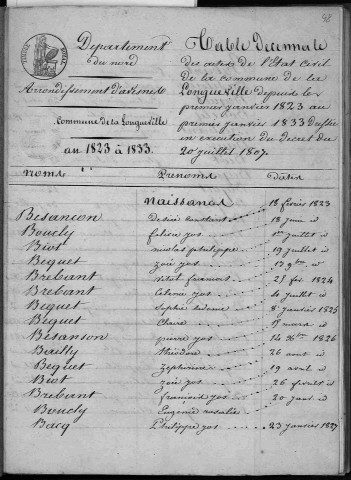 98
Departement
du nord
Arrondissement d'avesnes
Commune de la Longueville
an 1823 à 1833.
Table Decennale
des actes de l'Etat Civil
de la commune de la
Longueville depuis le
premier janvier 1823 au
premier janvier 1833 dressée
en exécution du decret du
20 juillet 1807.
Noms Prenoms Dates
naissances
Besancon desiré constant 18 fevrier 1823
Boucly 18 juin id
Biot nicolas philippe 19 juillet id
Bequet zoé jos 13 9bre id
Brebant vital 21 fev. 1824
Brebant jos 4 juillet id
Bequet Sophie 8 janvier 1825
Bequet Claire mars id
Besanson pierre jos 14 Xbre 1826
Bailly théodore 26 aout id
Bequet Zephirine 19 avril id
Biot zoé jos 26 fevrier id
Brebant francois jos 20 janv id
Boucly Eugénie rosalie
Bacq Philippe jos 23 janvier 1827